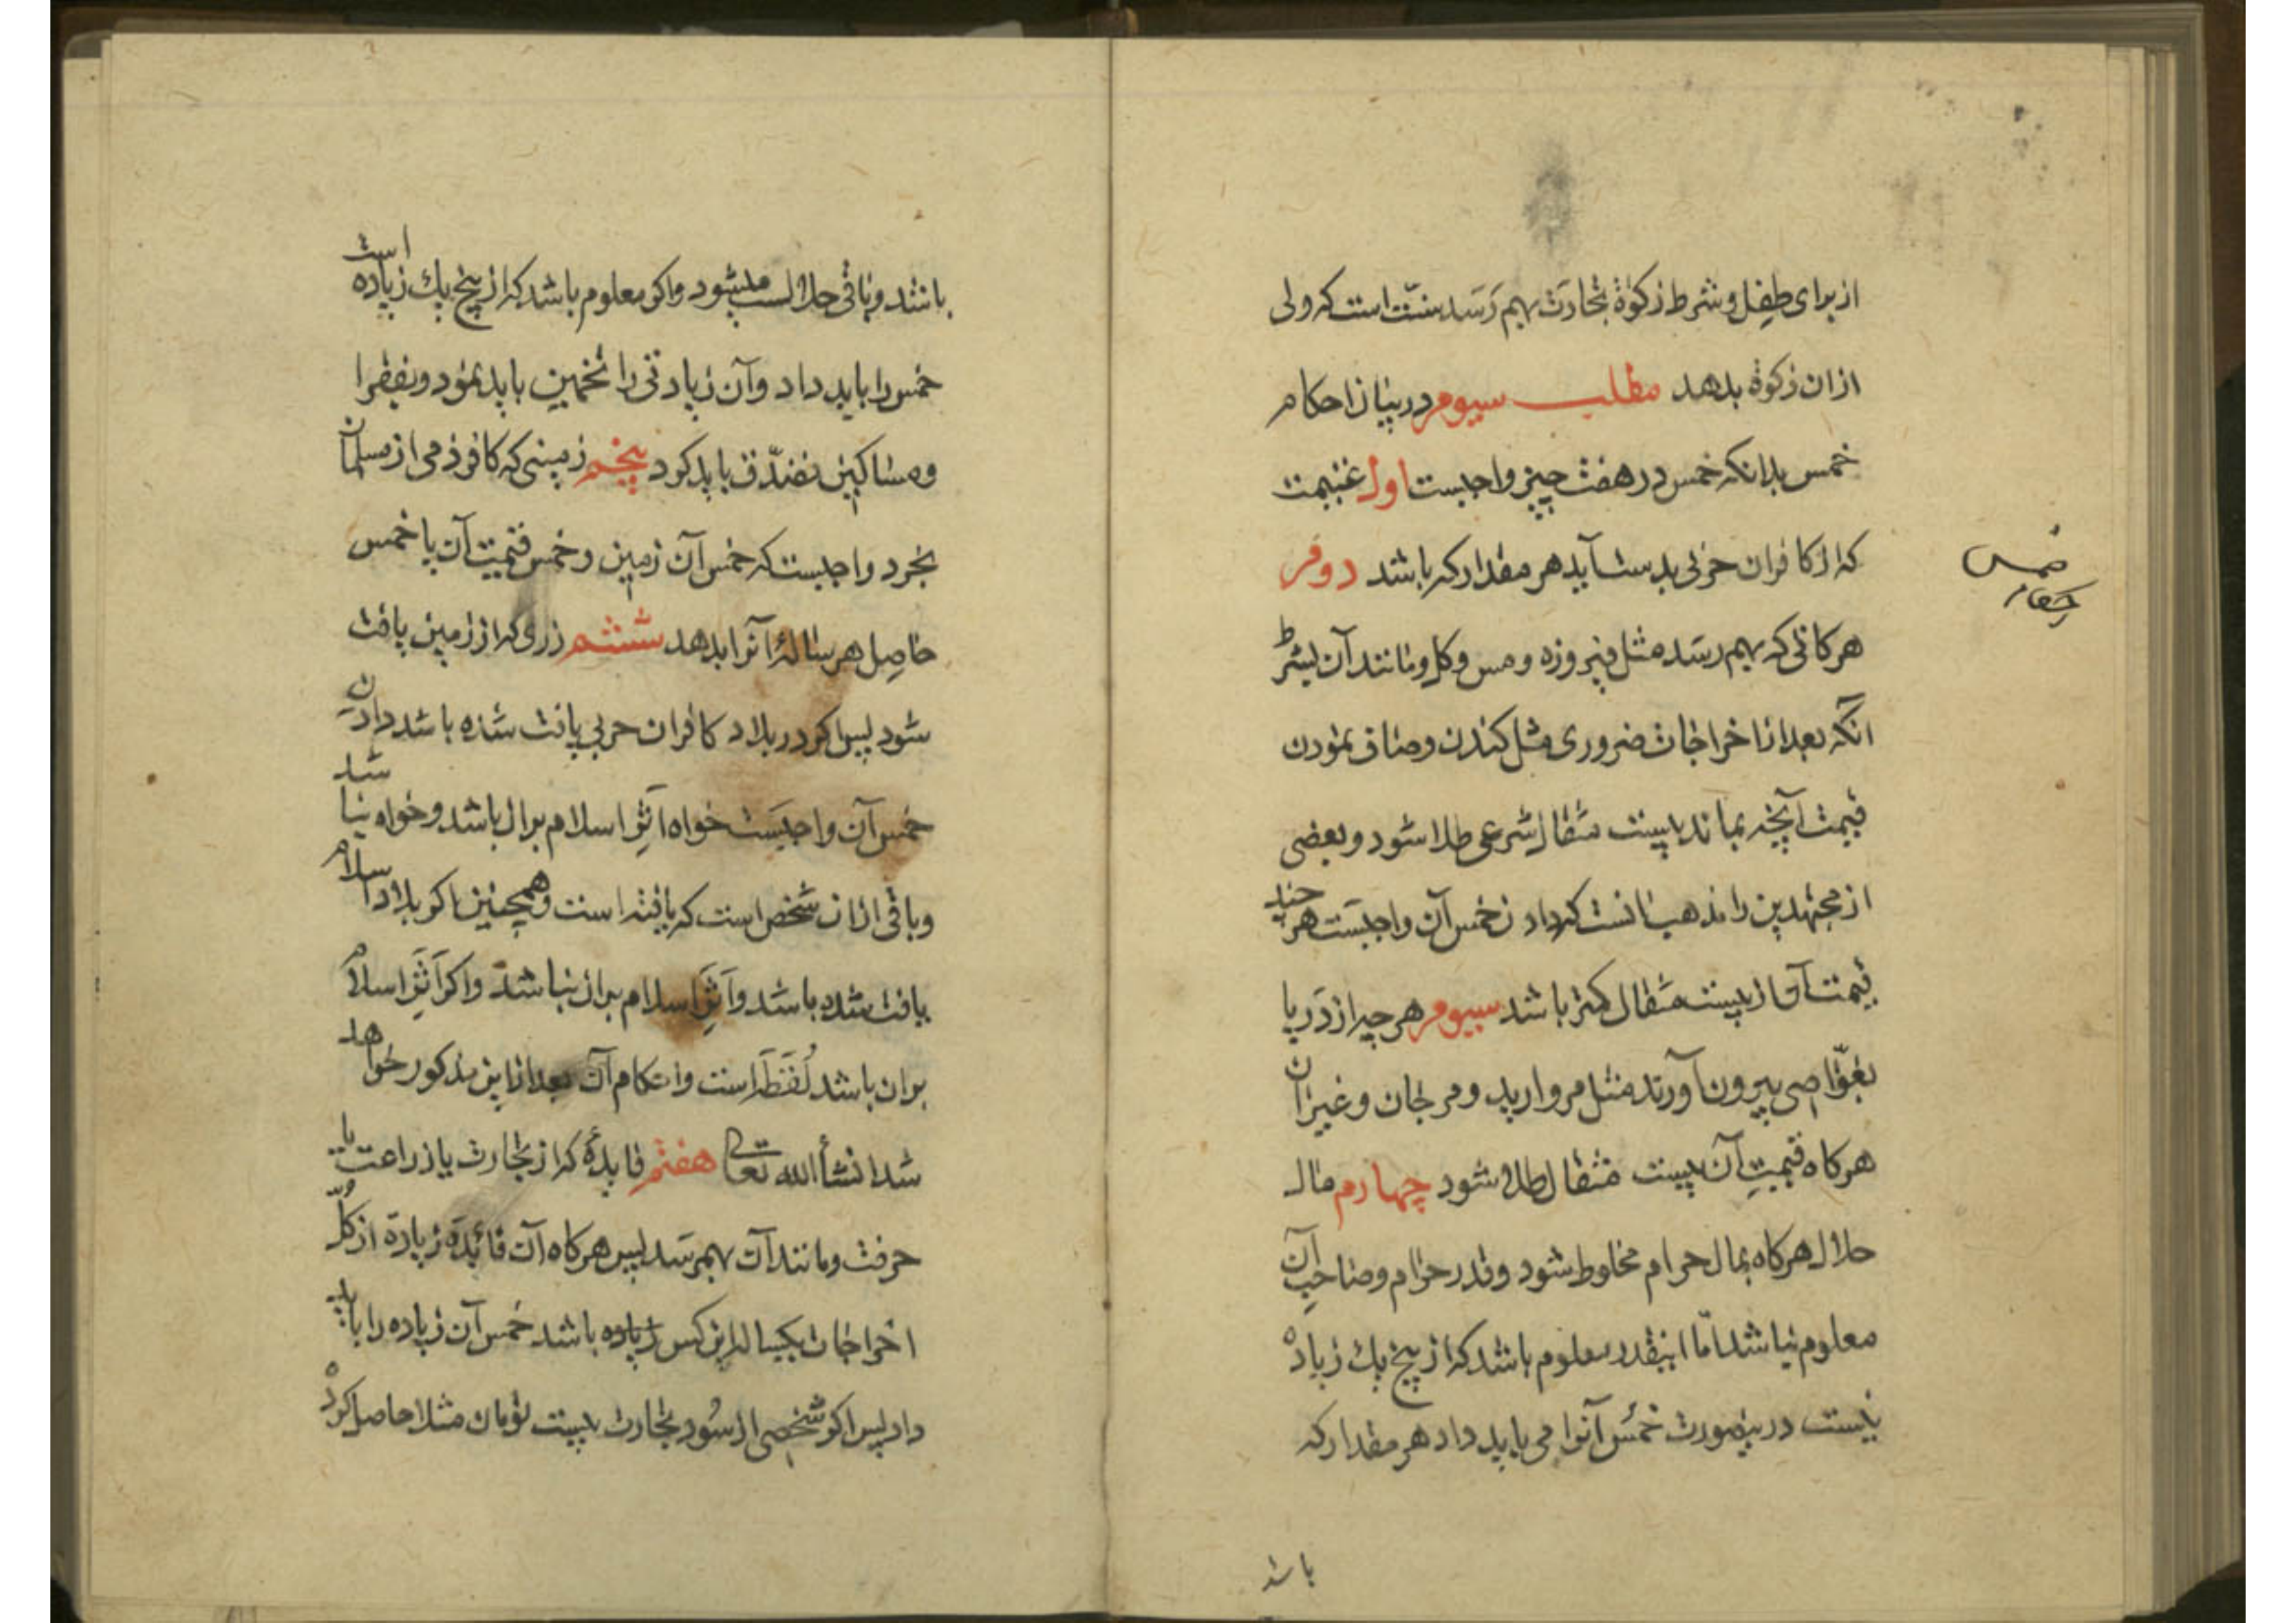 از برای طفل و شرط زکوة تجارت بهم رسد سنّت است که ولی
از ان زکوة بدهد مطلب سیوم در بیان احکام
خمس بدانکه خمس در هفت چیز واجبست اول غنیمت
که از کافران حربی بدست آید هر مقدار که باشد دوم
هر کانی که بهم رسد مثل فیروزه و مس و کل و مانند آن بشرط
انکه بعد از اخراجات ضروری مثل کندن و صاف نمودن
قیمت آنچه بماند ببیست مثقال شرعی طلا شود و بعضی
از مجتهدین را مذهب انست که دادن خمس آن واجبست هر چند
قیمت آن از بیست مثقال کمتر باشد سیوم هر چه از دریا
بغوّاصی بیرون آورند مثل مروارید و مرجان و غیر ان
هرکاه قیمت آن بیست مثقال طلا شود چهارم مال
حلال هرکاه بمال حرام مخلوط شود و قدر حرام و صاحب آن
معلوم نباشد امّا اینقدر معلوم باشد که از پنج یك زیاده
نیست در ینصورت خمس آنرا می باید داد هر مقدار که
باشد
خمس
احکام
باشد و باقی حلالست میشود و اکر معلوم باشد که از پنج یك زیاده است
خمس را باید داد و آن زیادتی را تخمین باید نمود و بفقرا
و مساکین تصدّق باید کرد پنجم زمینی که کافر ذمی از مسلمان
بخرد واجبست که خمس آن زمین و خمس قیمت آن یا خمس
حاصل هر ساله آنرا بدهد ششم زری که از زمین یافت
شود پس اکر در بلاد کافران حربی یافت شده باشد دادن
خمس آن واجبست خواه اثر اسلام بران باشد و خواه نباشد
و باقی ازان شخص است که یافته است و همچنین اکر بلاد اسلام
یافت شده باشد و اثر اسلام بران نباشد و اکر اثر اسلام
بران باشد لقطه است و احکام آن بعد از این مذکور خواهد
شد انشأالله تعالی هفتم فایدهٔ که از تجارت یا زراعت یا
حرفت و مانند آن بهمرسد پس هرکاه آن فائده زیاده از کلّ
اخراجات یکساله این کس زیاده باشد خمس آن زیاده را باید
داد پس اکر شخصی از سود تجارت بیست تومان مثلا حاصل کرده